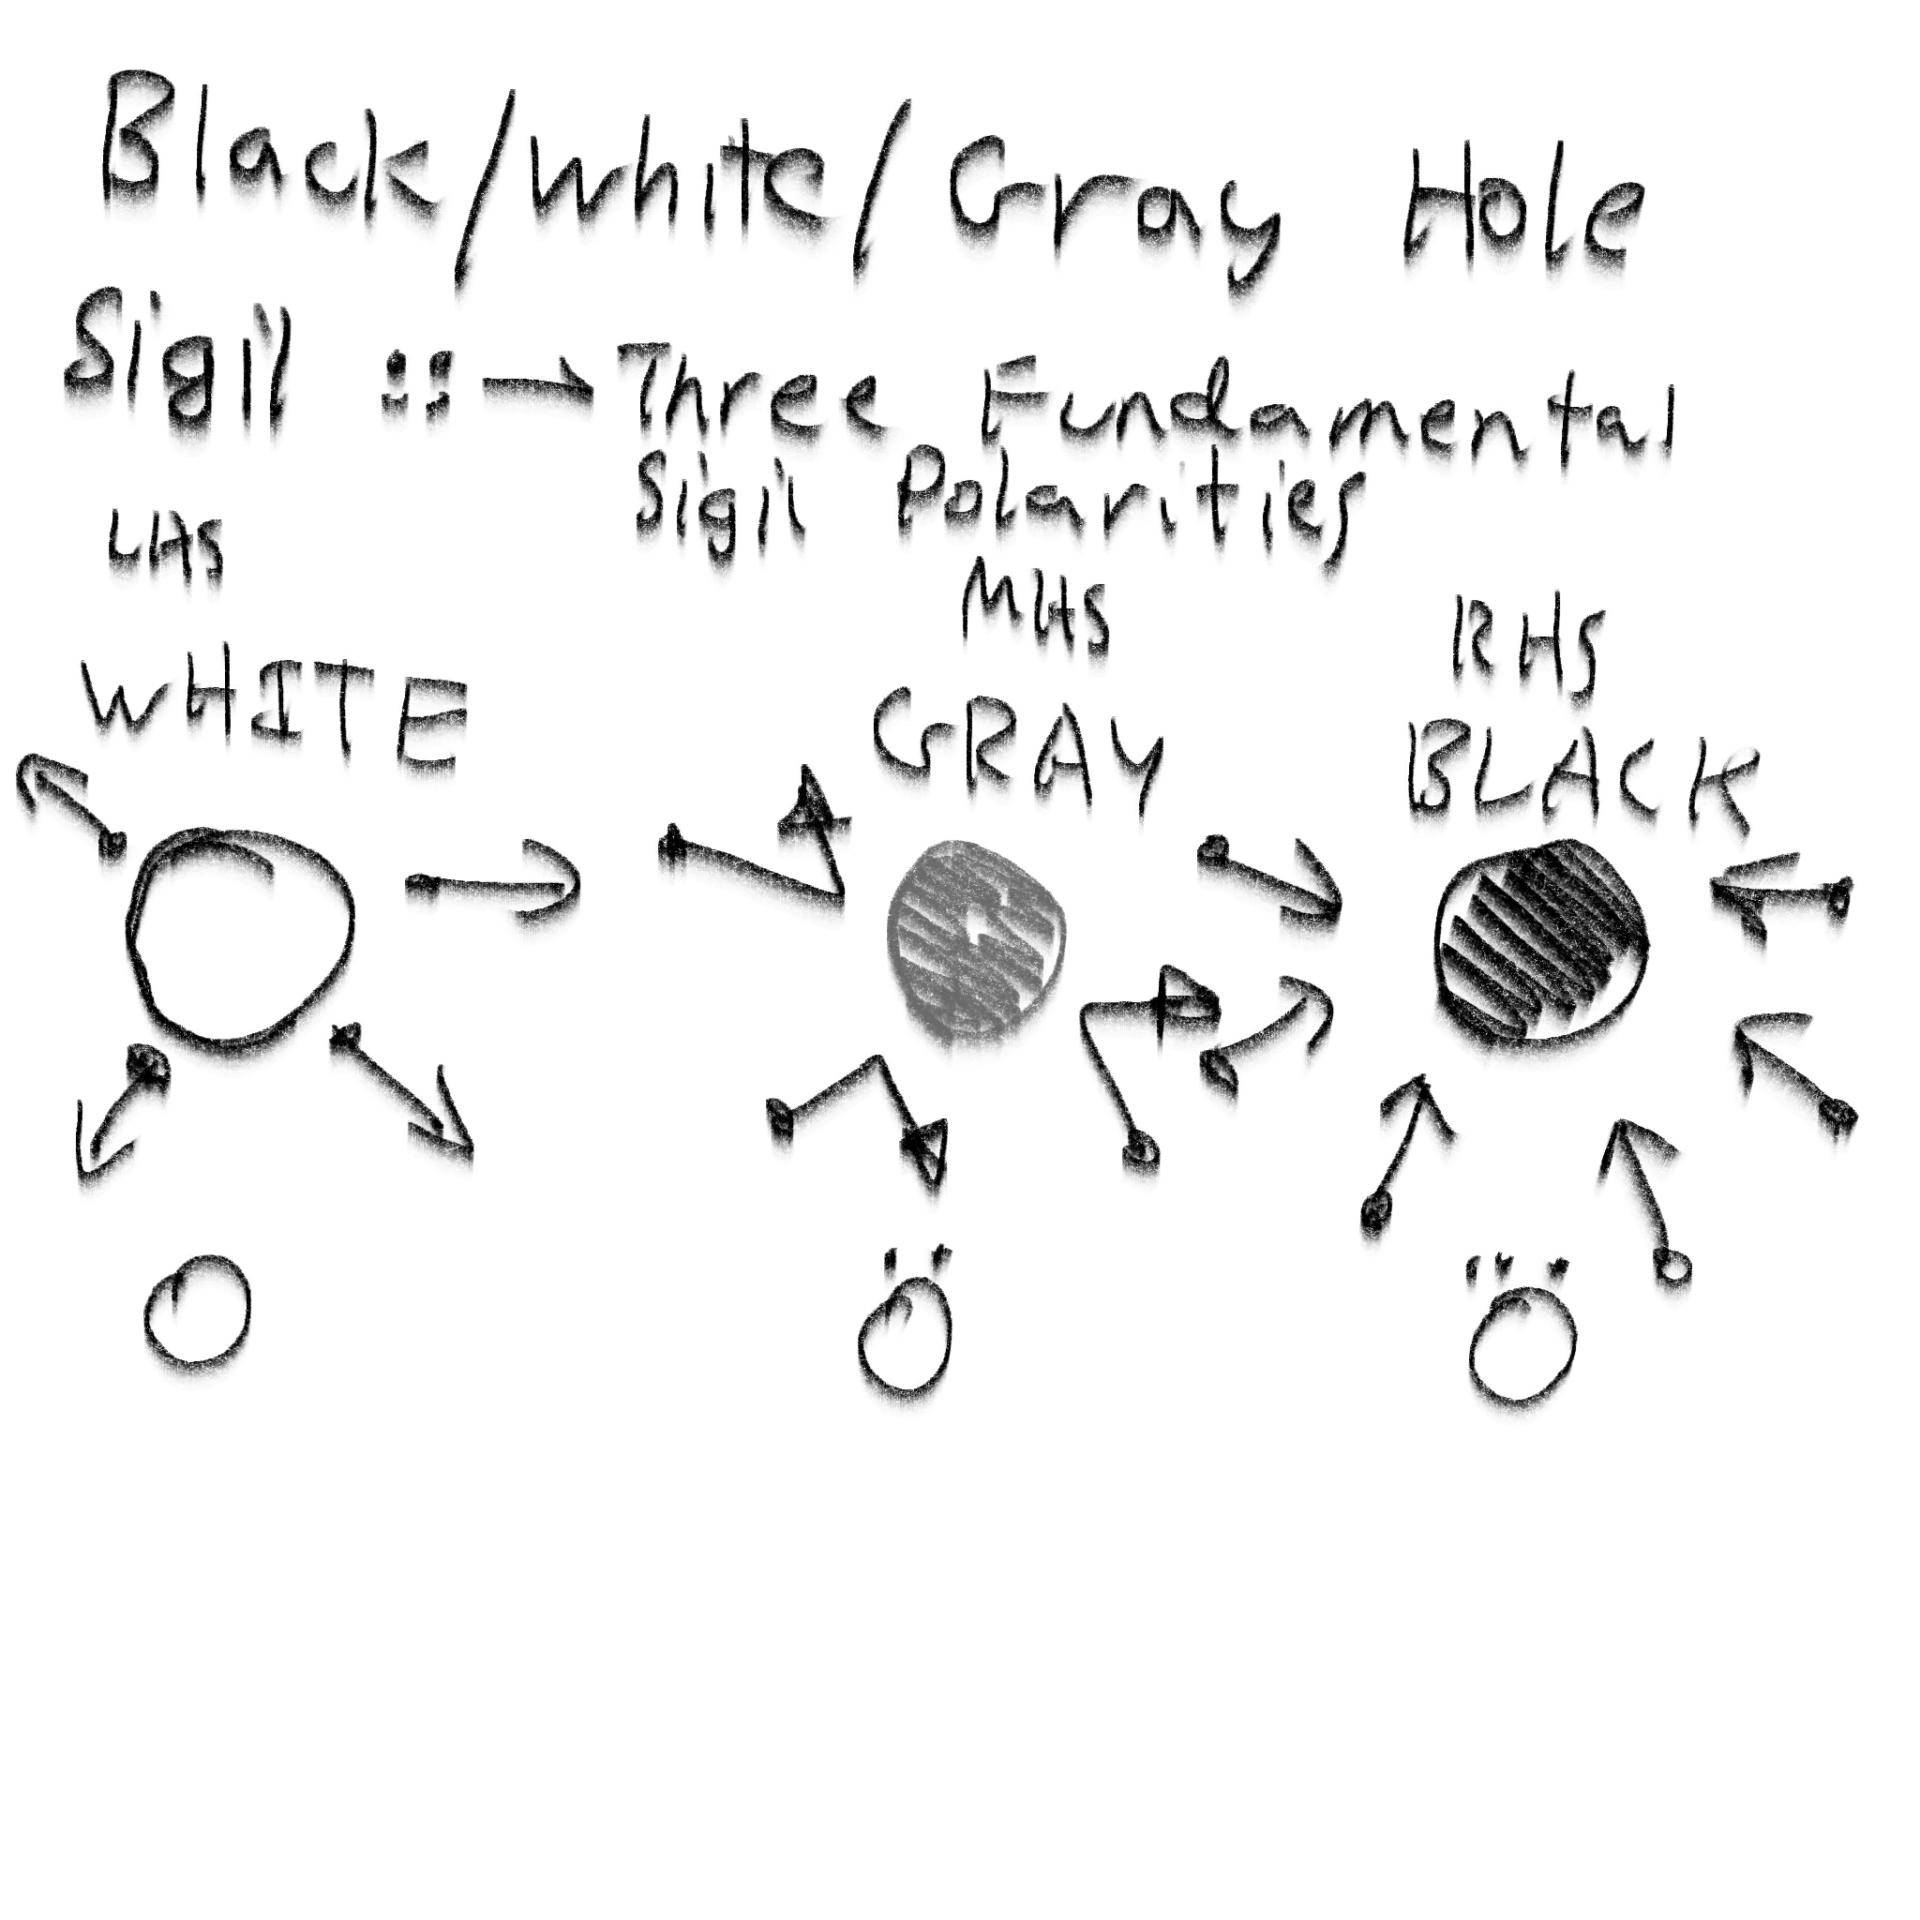 Black/White/Gray Hole
Sigil ::→ Three Fundamental
Sigil Polarities
LHS
MHS
RHS
WHITE
GRAY
BLACK
O
Ö
Ö